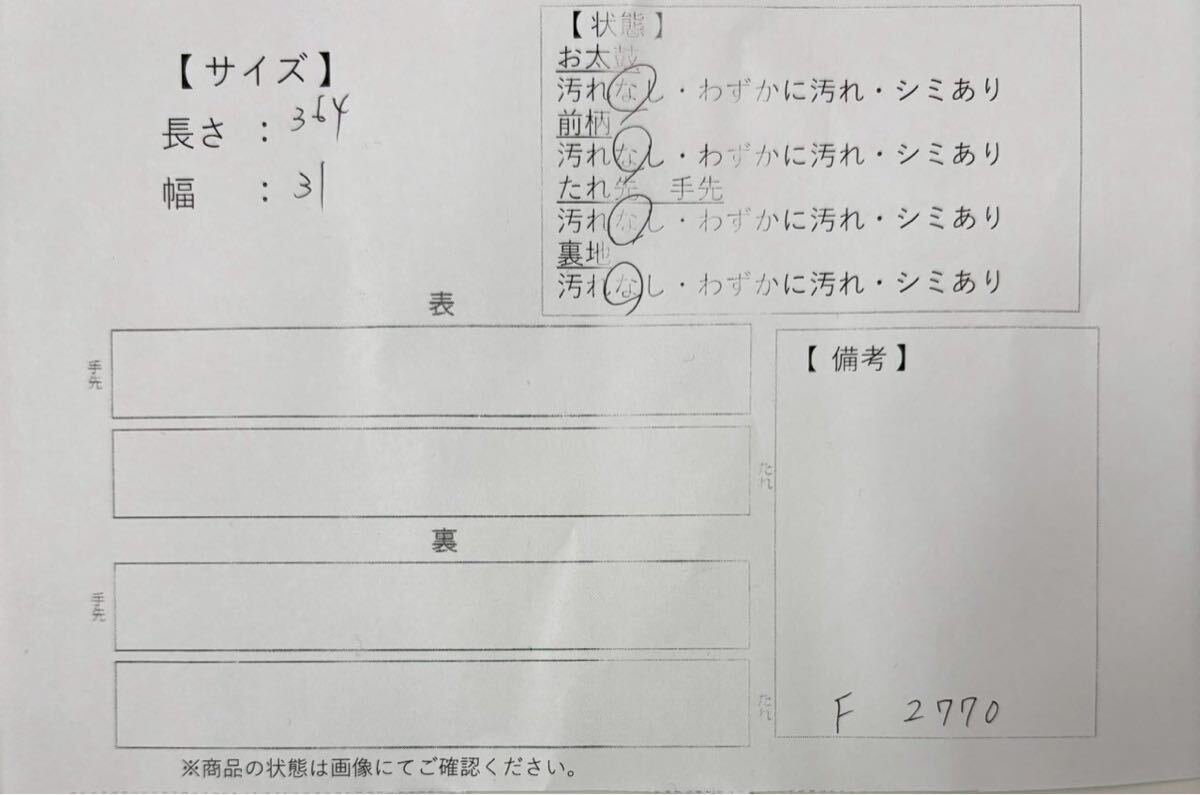 【 サイズ 】
長さ ： 364
幅 ： 31
【 状態 】
お太鼓
汚れなし・わずかに汚れ・シミあり
前柄
汚れなし・わずかに汚れ・シミあり
たれ先 手先
汚れなし・わずかに汚れ・シミあり
裏地
汚れなし・わずかに汚れ・シミあり
表
手先
たれ
裏
手先
たれ
【 備考 】
F 2770
※商品の状態は画像にてご確認ください。